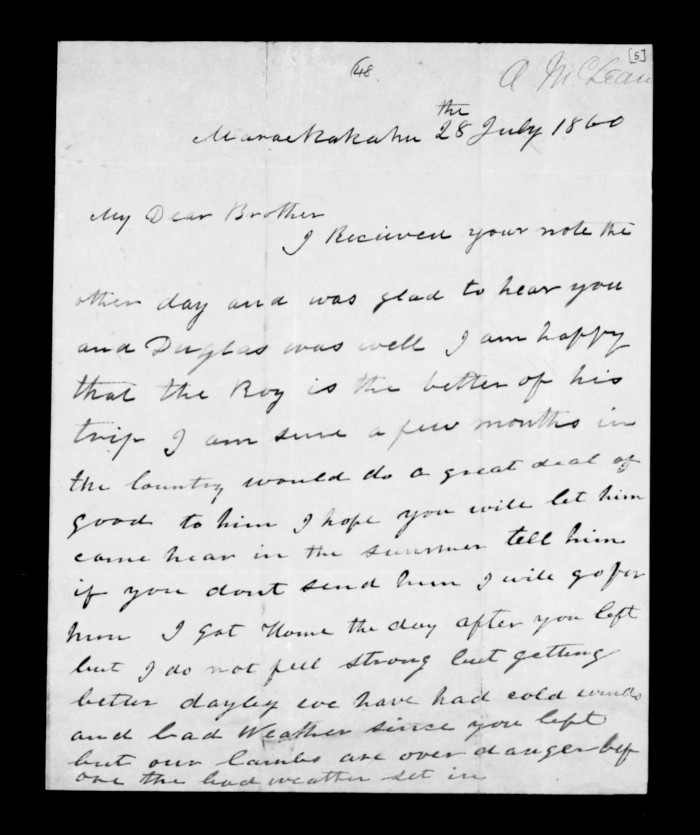 [5]
48
A McLean
Maraekakahu the 28 July 1860
My Dear Brother
I Recieved your note the
other day and was glad to hear you
and Duglas was well I am happy
that the Boy is the better of his
trip I am sure a few months in
the Country would do a great deal of
good to him I hope you will let him
come hear in the summer tell him
if you dont send him I will go for
him I got Home the day after you left
but I do not feel strong but getting
better dayley we have had cold winds
and bad Weather since you left
but our lambs are over danger bef
ore the bad weather set in